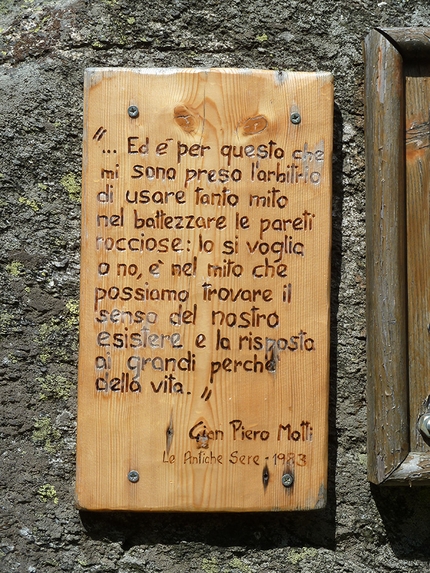 "... Ed é per questo che
mi sono preso l'arbitrio
di usare tanto mito
nel battezzare le pareti
rocciose: lo si voglia
o no, è nel mito che
possiamo trovare il
senso del nostro
esistere e la risposta
ai grandi perchè
della vita. "
Gian Piero Motti
Le Antiche Sere - 1983